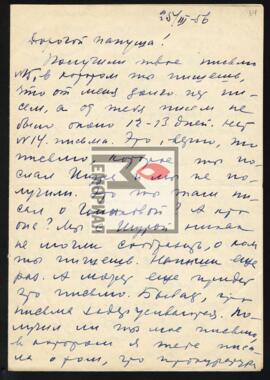 25/III-56
Дорогой папуша!
Получили твое письмо
№15, в котором ты пишешь,
что от меня долго нет пи-
сем, а от тебя писем не
было около 12-13 дней. Нет
№14 письма. Это, видно, то
письмо, которое ты по-
слал мы не по-
лучили. Что ты там пи-
сал о ? А кто
она? Мы с Шурой никак
не могли сообразить, о ком
ты пишешь. Напиши еще
раз. А может еще придет
это письмо. Бывает, что
письма задерживаются. По-
лучил ли ты мое письмо,
в котором я тебе писа-
ла о том, что прокуратура